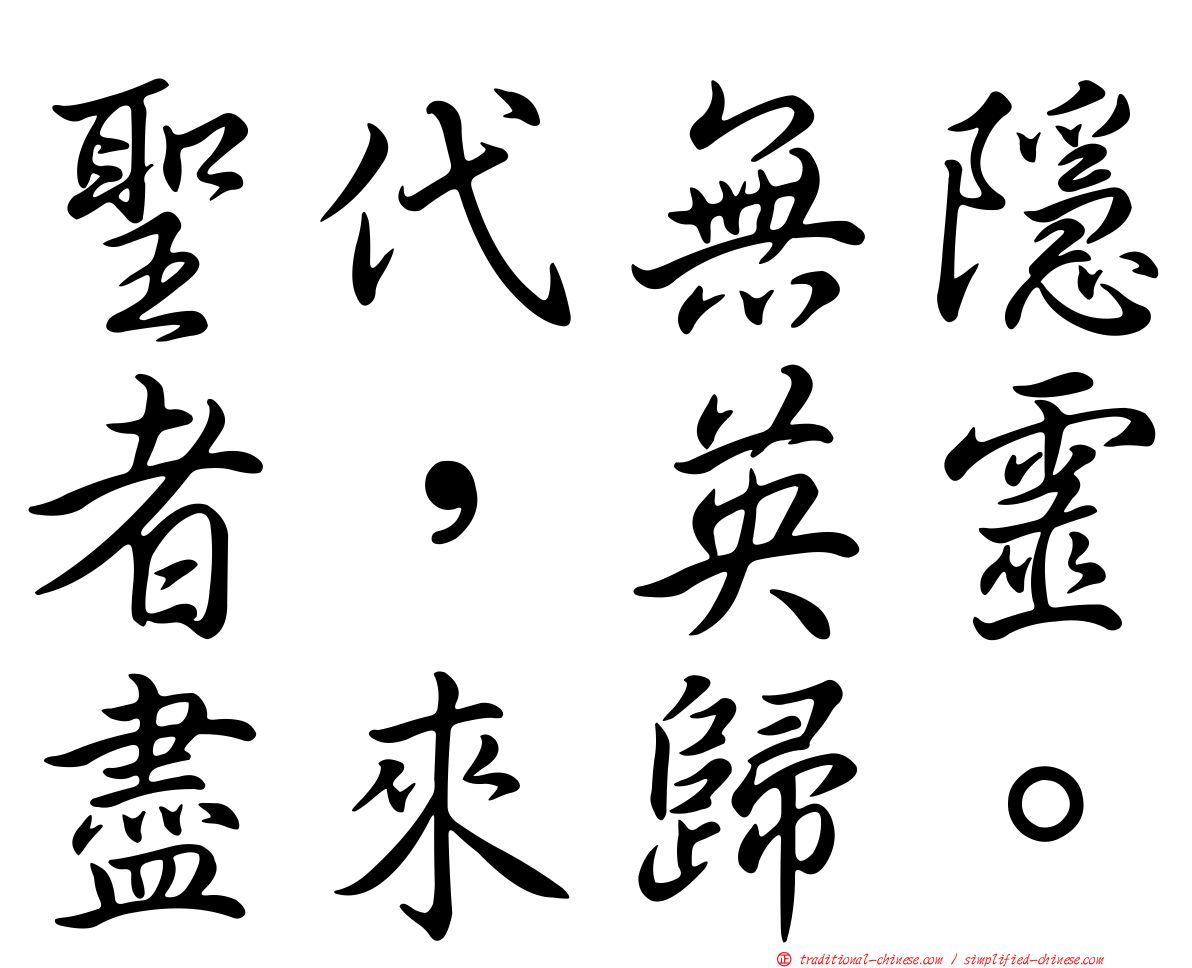 聖代無隱
者，英靈
盡來歸。
正 traditional-chinese.com / simplified-chinese.com